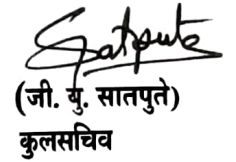 Satpute
(जी. यु. सातपुते)
कुलसचिव